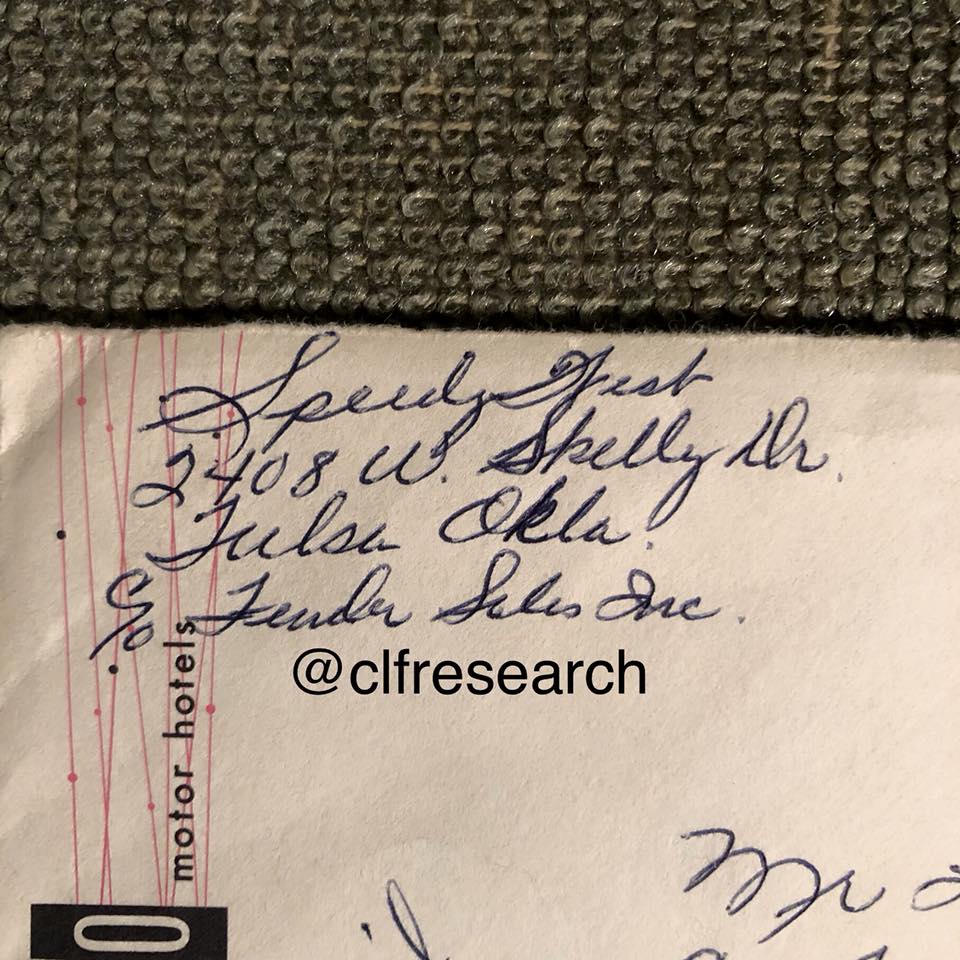 Speedy West
2408 W. Skelly Dr.
Tulsa Okla.
c/o Fender Sales Inc.
@clfresearch
motor hotels
Mr